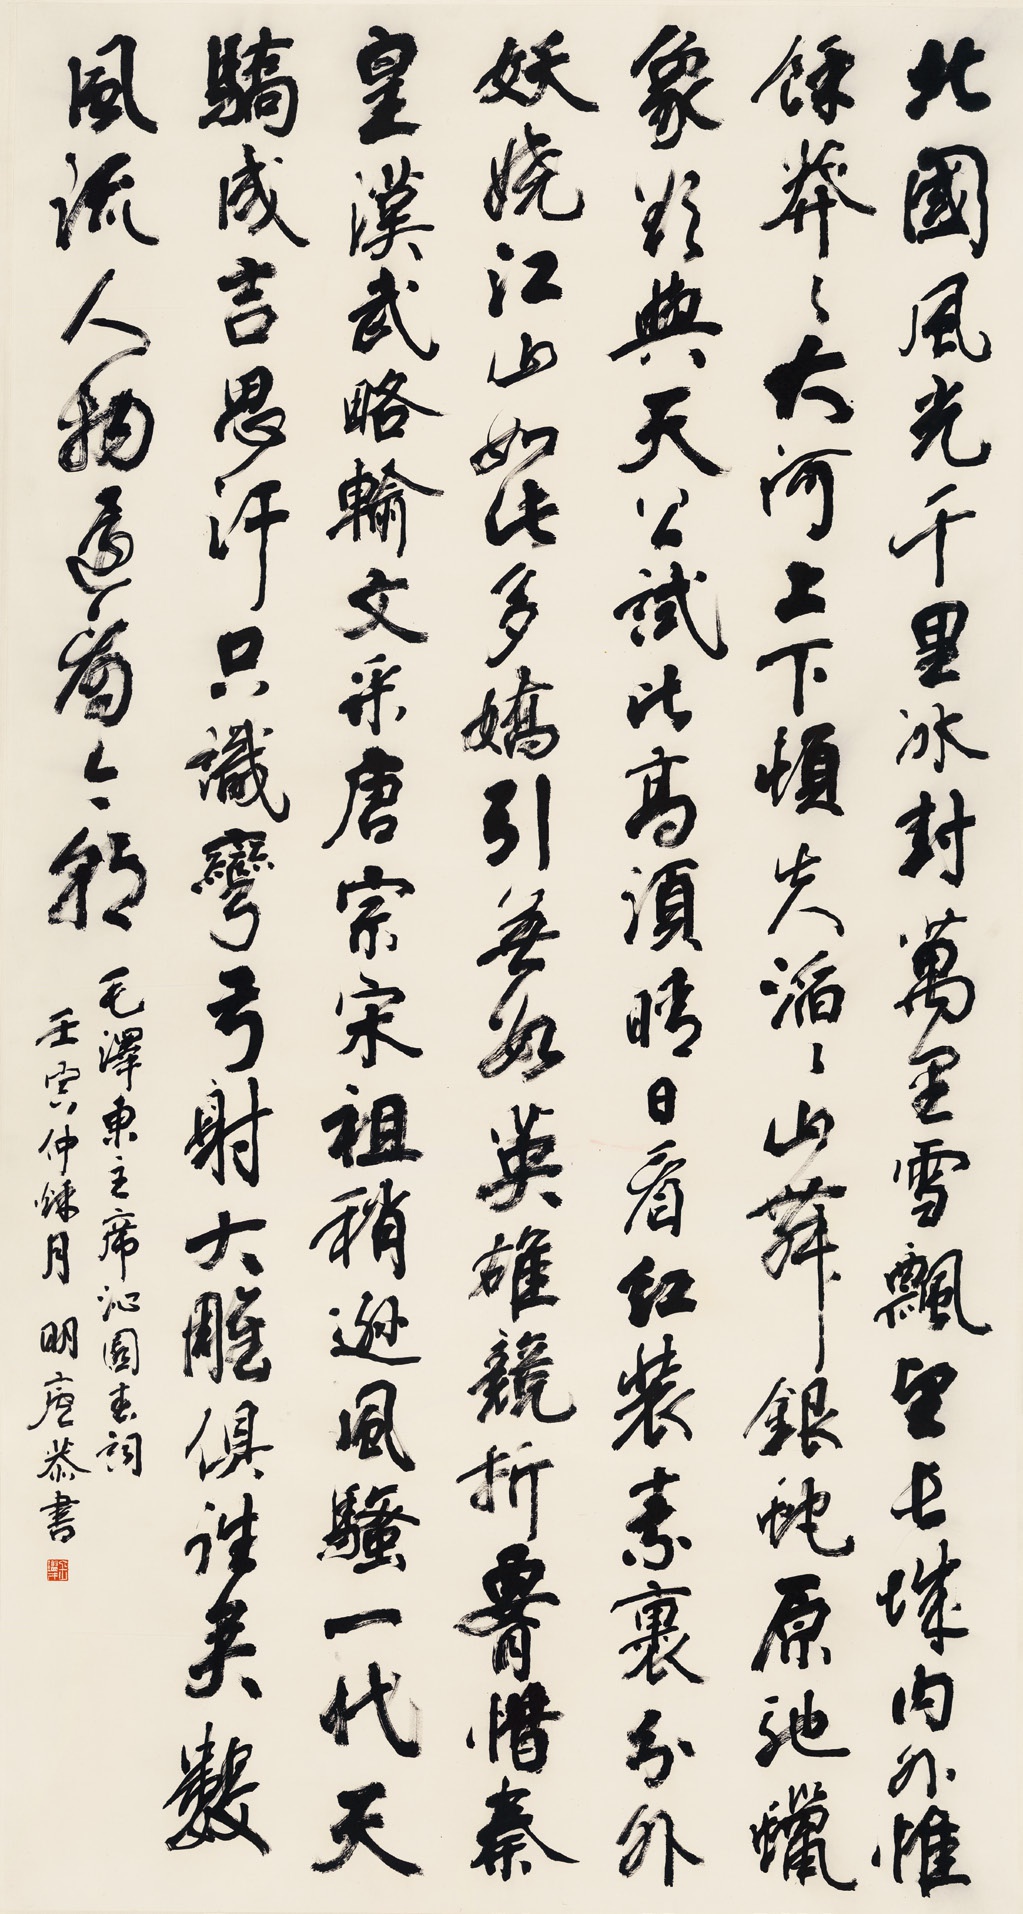 北國風光千里冰封萬里雪飄望長城內外惟
餘莽〻大河上下頓失滔〻山舞銀蛇原馳蠟
象欲與天公試比高須晴日看紅裝素裹分外
妖嬈江山如此多嬌引無數英雄競折腰惜秦
皇漢武略輸文采唐宗宋祖稍遜風騷一代天
驕成吉思汗只識彎弓射大雕俱往矣數
風流人物還看今朝
毛澤東主席沁園春詞
壬寅仲秋月 明恭書